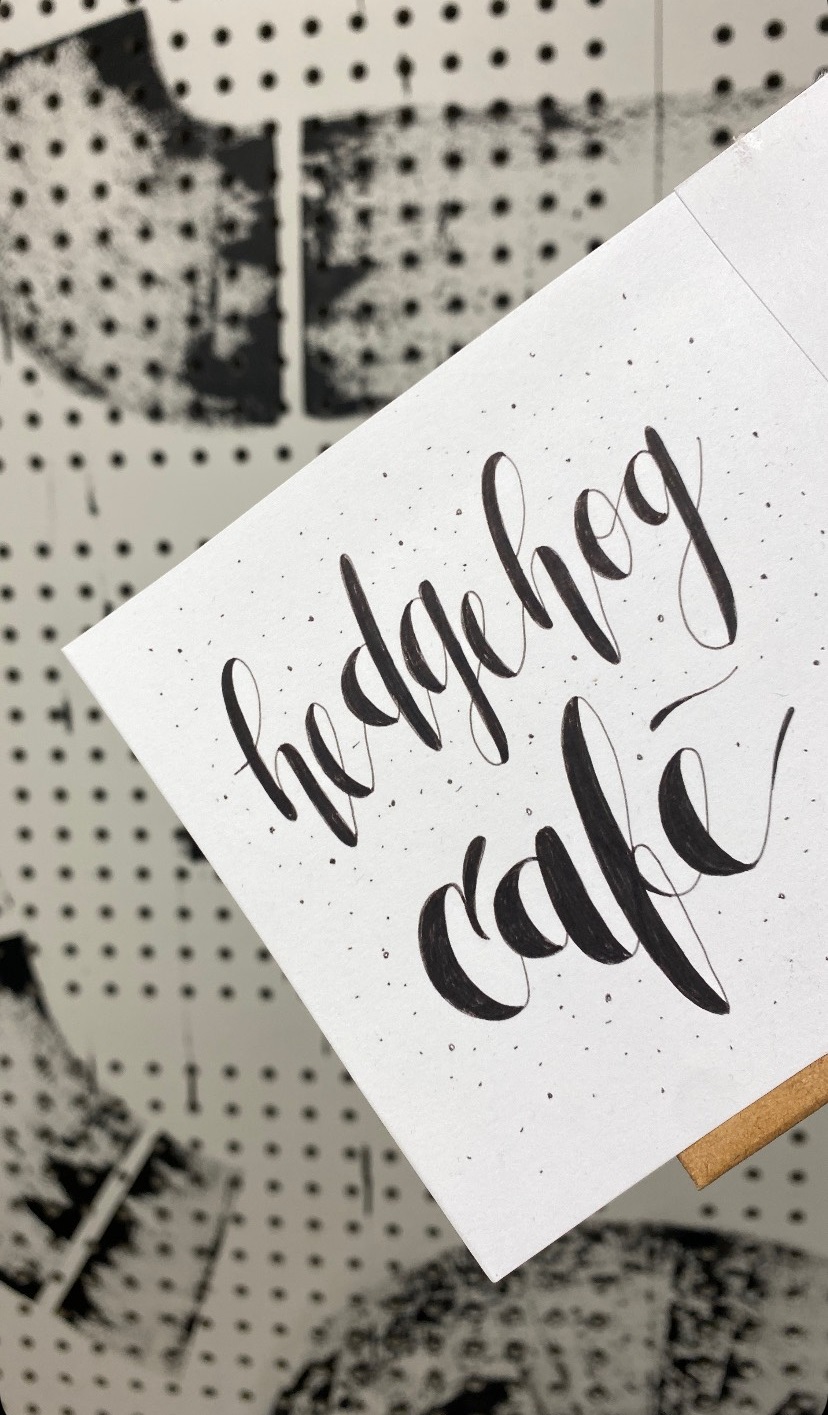 hedgehog
café